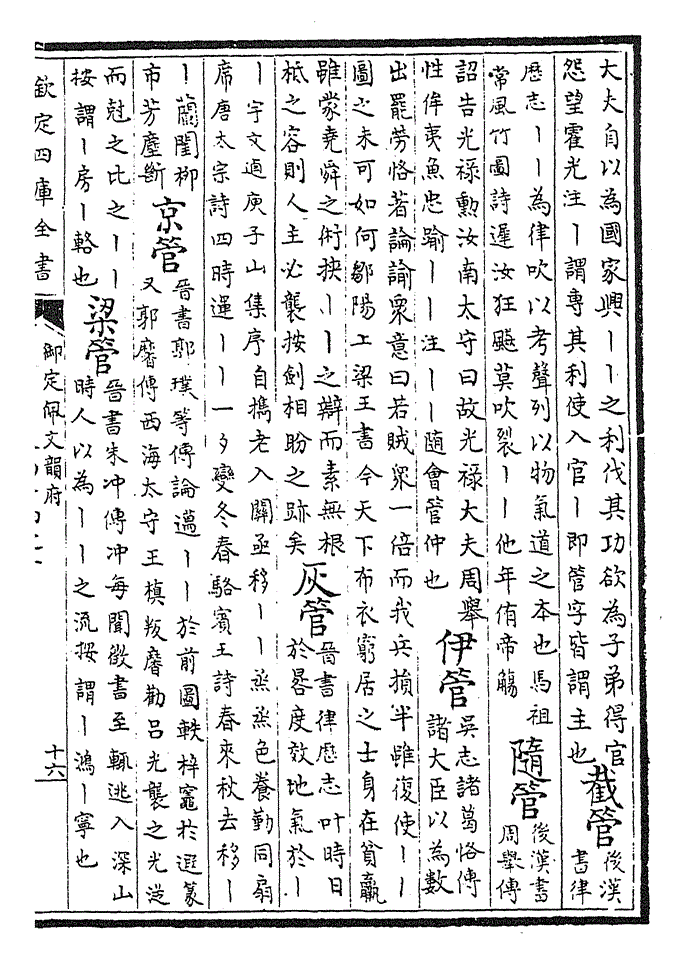 大夫自以為國家興丨丨之利伐其功欲為子弟得官
怨望霍光注丨謂專其利使入官丨即管字皆謂主也
截管
後漢
書律
歷志丨丨為律吹以考聲列以物氣道之本也馬祖
常風竹圖詩遲汝狂颷莫吹裂丨丨他年侑帝觴
隨管
後漢書
周舉傳
詔告光禄勲汝南太守曰故光禄大夫周舉
性侔夷魚忠踰丨丨注丨丨随會管仲也
伊管
吳志諸葛恪傳
諸大臣以為數
出罷勞恪著論諭衆意曰若賊衆一倍而我兵損半雖復使丨丨
圖之未可如何鄒陽上梁王書今天下布衣窮居之士身在貧羸
雖蒙堯舜之術挾丨丨之辯而素無根
柢之容則人主必襲按劍相盼之跡矣
灰管
晉書律歷志叶時日
於晷度效地氣於丨
丨宇文逌庾子山集序自擕老入關亟移丨丨烝烝色養勤同扇
席唐太宗詩四時運丨丨一夕變冬春駱賓王詩春來秋去移丨
丨蘭閨柳
市芳塵斷
京管
晉書郭璞等傳論邁丨丨於前圖軼梓竈於遐篆
又郭黁傳西海太守王楨叛黁勸吕光襲之光從
而尅之比之丨丨
按謂丨房丨輅也
梁管
晉書朱冲傳冲每聞徵書至輒逃入深山
時人以為丨丨之流按謂丨鴻丨寧也
欽定四庫全書
御定佩文韻府
十六